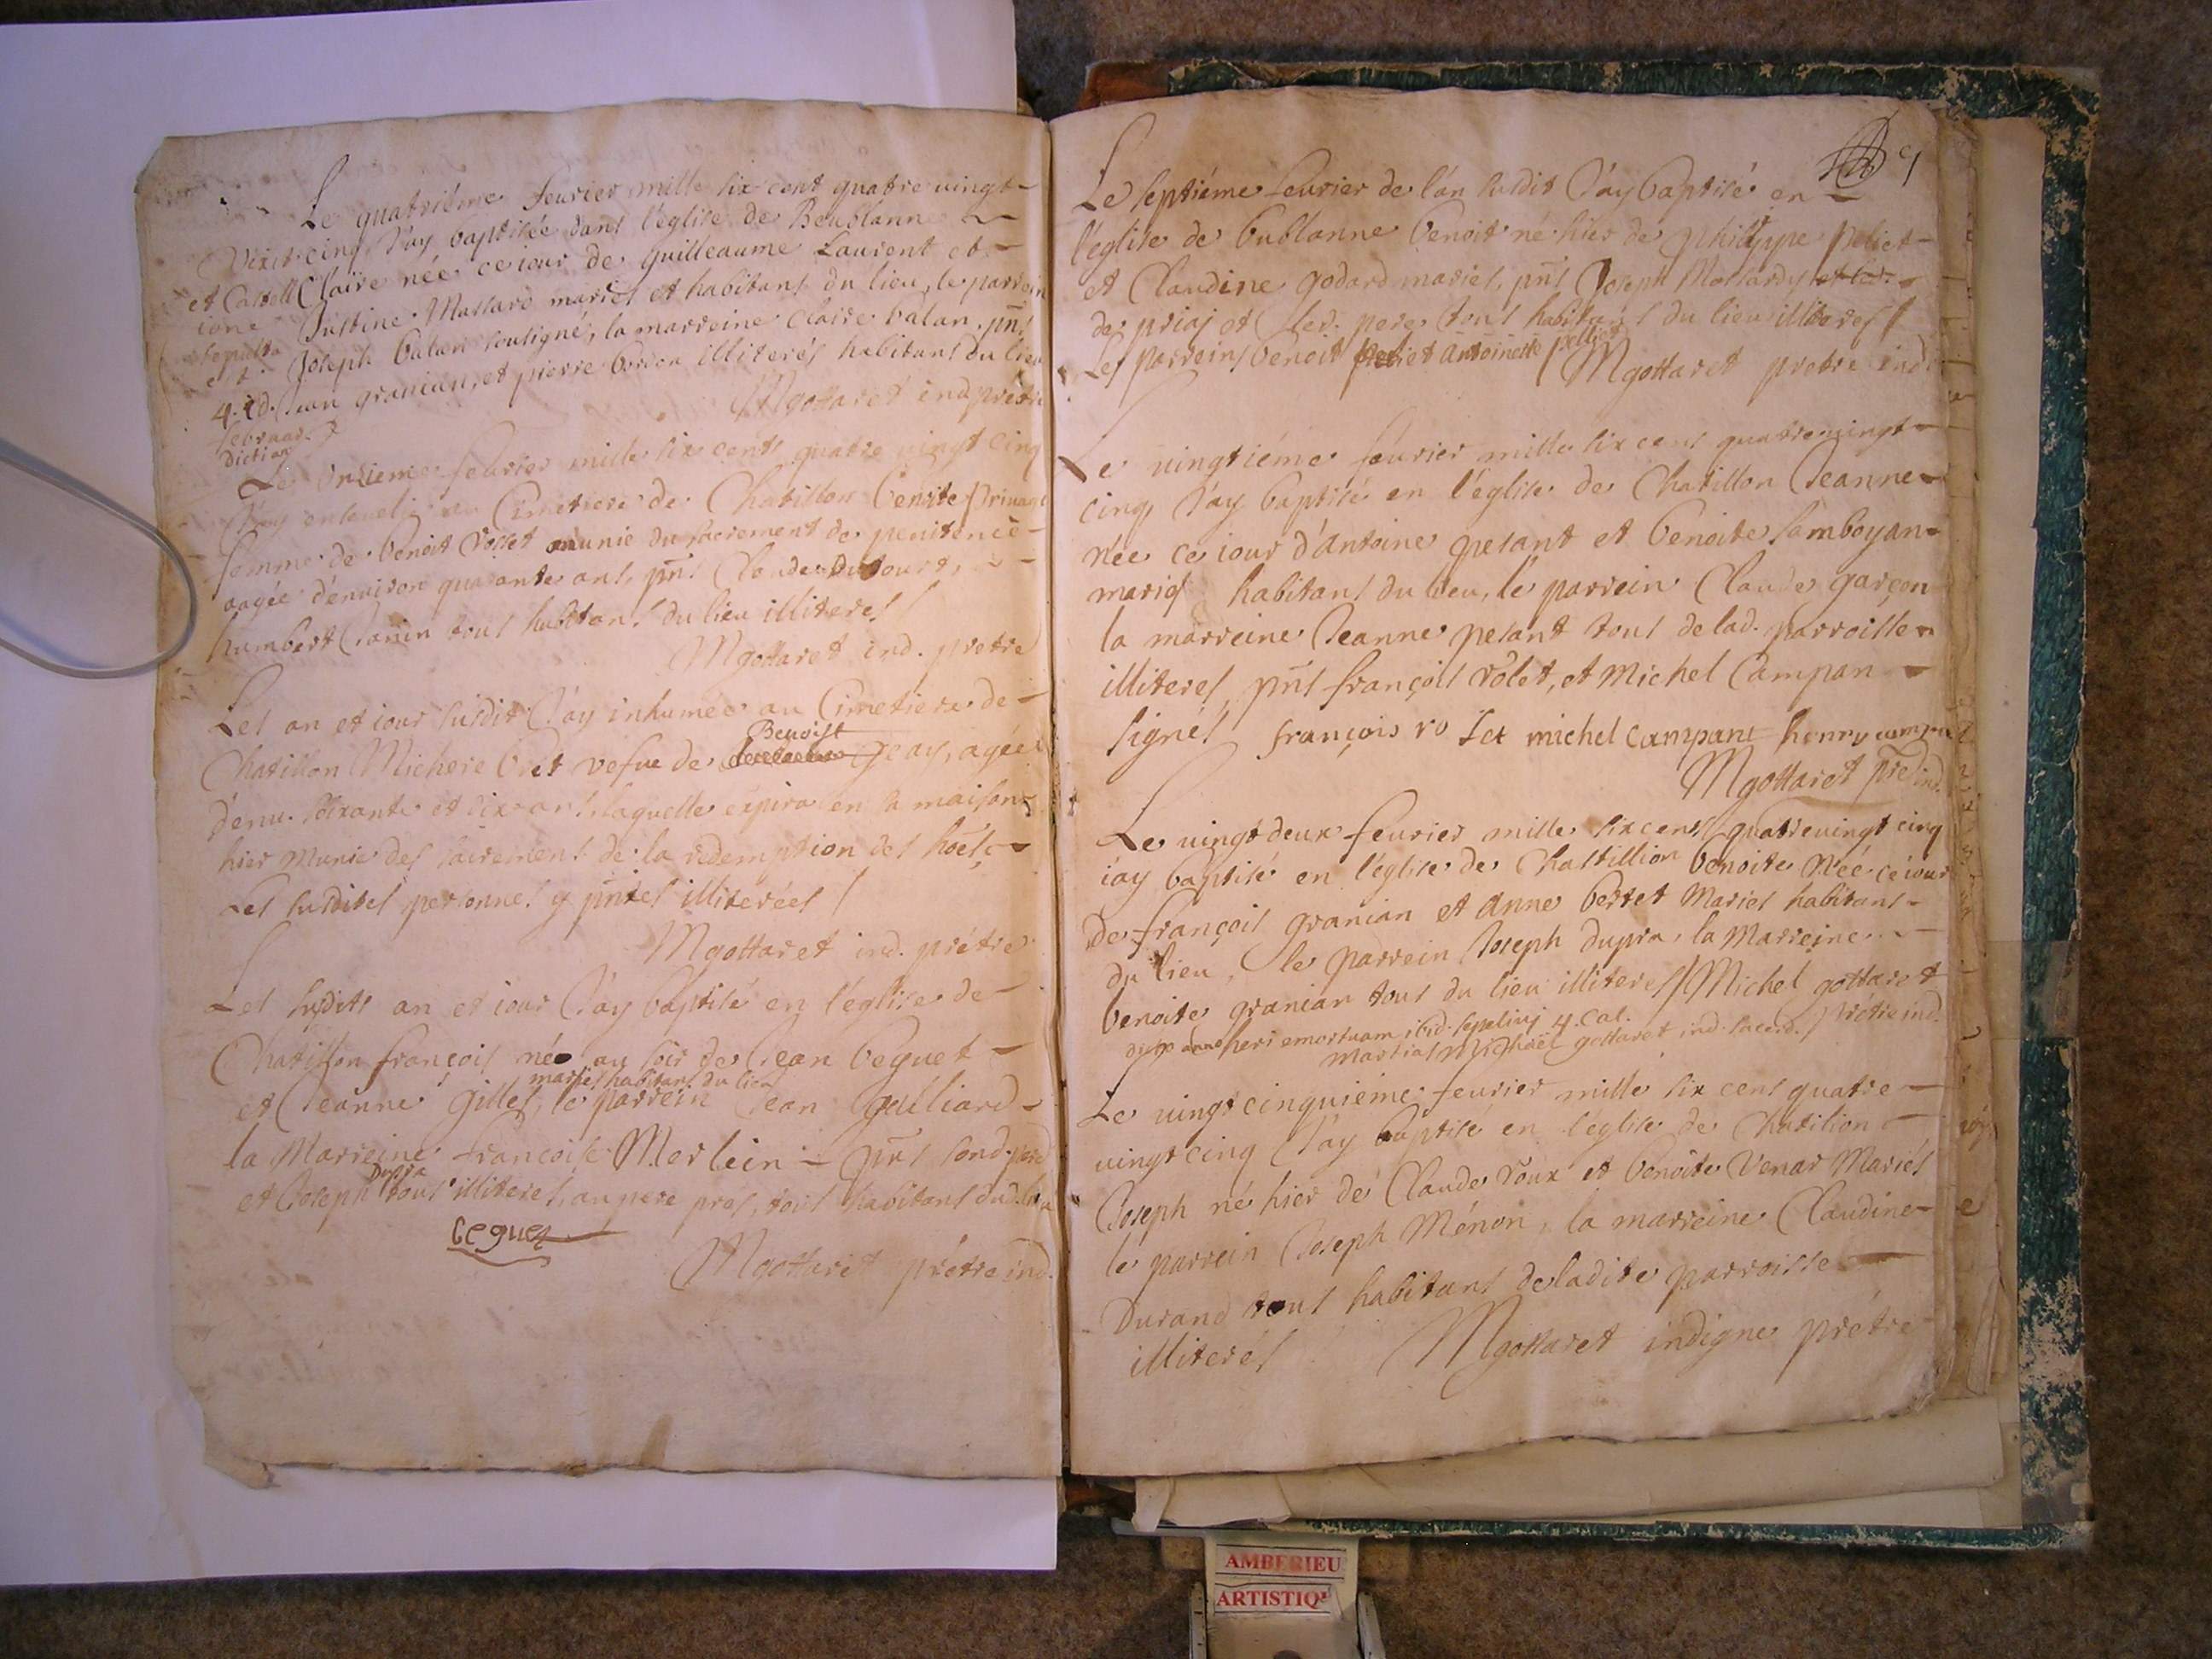 Le quatriéme feurier mille six cent quatre vingt
cinq J'ay baptisée dans l'église de Beublanne
Claire née ce iour de Guilleaume Laurent et
Justine Massard mariés et habitans du lieu, le parrein
Joseph balan sousigné, la marreine Claire balan, pñs
Jean granian, et pierre illiterés habitans du lieu
Mgottaret ind prétre
Vixit
et Castell
ione
sepulta
est
4. id.
februar.
dicti an
Le onzieme feurier mille six cents quatre vingt cinq
J'ay enseueli au Cimetiere de Chatillon benoite
femme de benoit rosset munie du sacrement de penitence
aagée d'enuiron quarante ans, pñs Claude Dutour,
humbert Janin tous habitans du lieu illiteres /
Mgottaret ind. pretre
Les an et iour susdit J'ay inhumée au Cimetiere de
Benoist
Chatillon Michere vefue de Geay, agée
d'enu. soixante et dix ans, laquelle expira en sa maison
hier munie des sacrements de la redemption des hoés,
Les susdites personnes y pñtes illiterées /
Mgottaret ind. prétre
Les susdits an et iour J'ay baptisé en l'église de
Chatillon françois né au soir de Jean beguet
mariés habitans du lieu
et Jeanne Gilles, le parrein Jean Galliard
la Marreine francoise Merlein pñs sond. pere
Dupra
et Joseph tous illiteres, au pere pres, tous habitans dud. lieu
beguet
Mgottaret prétre ind.
9
Le septiéme feurier de l'an susdit J'ay baptisé en
l'eglise de bublanne benoit né hier de philippe peliet
et Claudine godard mariés, pñs Joseph Mossardy et led.
de priaj et led. pere tous habitans du lieu illiteres /
pelliet
Les parreins benoit peliet Antoinette
Mgottaret pretre ind
Le vingtiéme féurier mille six cens quatre vingt
cinq J'ay baptisé en l'église de Chatillon Jeanne
née ce iour d'Antoine pesant et benoite samboyan
mariés habitans du lieu, le parrein Claude garçon
la marreine Jeanne pesant tous de lad. parroisse
illiteres, pñs françois rolet, et Michel Campan
signés françois ro let michel Campant henry campan
Mgottaret ptre ind.
Le vingt deux feurier mille six cens quatre vingt cinq
i'ay baptisé en l'église de Chastillion benoite née ce iour
de françois granian et Anne bertet Mariés habitans
du lieu, le parrein Joseph dupra, la Marreine
benoite granian tous du lieu illiteres / Michel gottaret
prétre ind.
dicto anno heri emortuam ibid. sepelivj 4. Cal.
martias Michael gottaret ind. sacerd.
Le vingt cinquiéme feurier mille six cens quatre
vingt cinq J'ay baptisé en l'église de Chatilion
Joseph né hier de Claude roux et benoite Venar Mariés
le parrein Joseph Ménon, la marreine Claudine
Durand tous habitans deladite parroisse
illiterés Mgottaret indigne prétre
AMBERIEU
ARTISTIQ